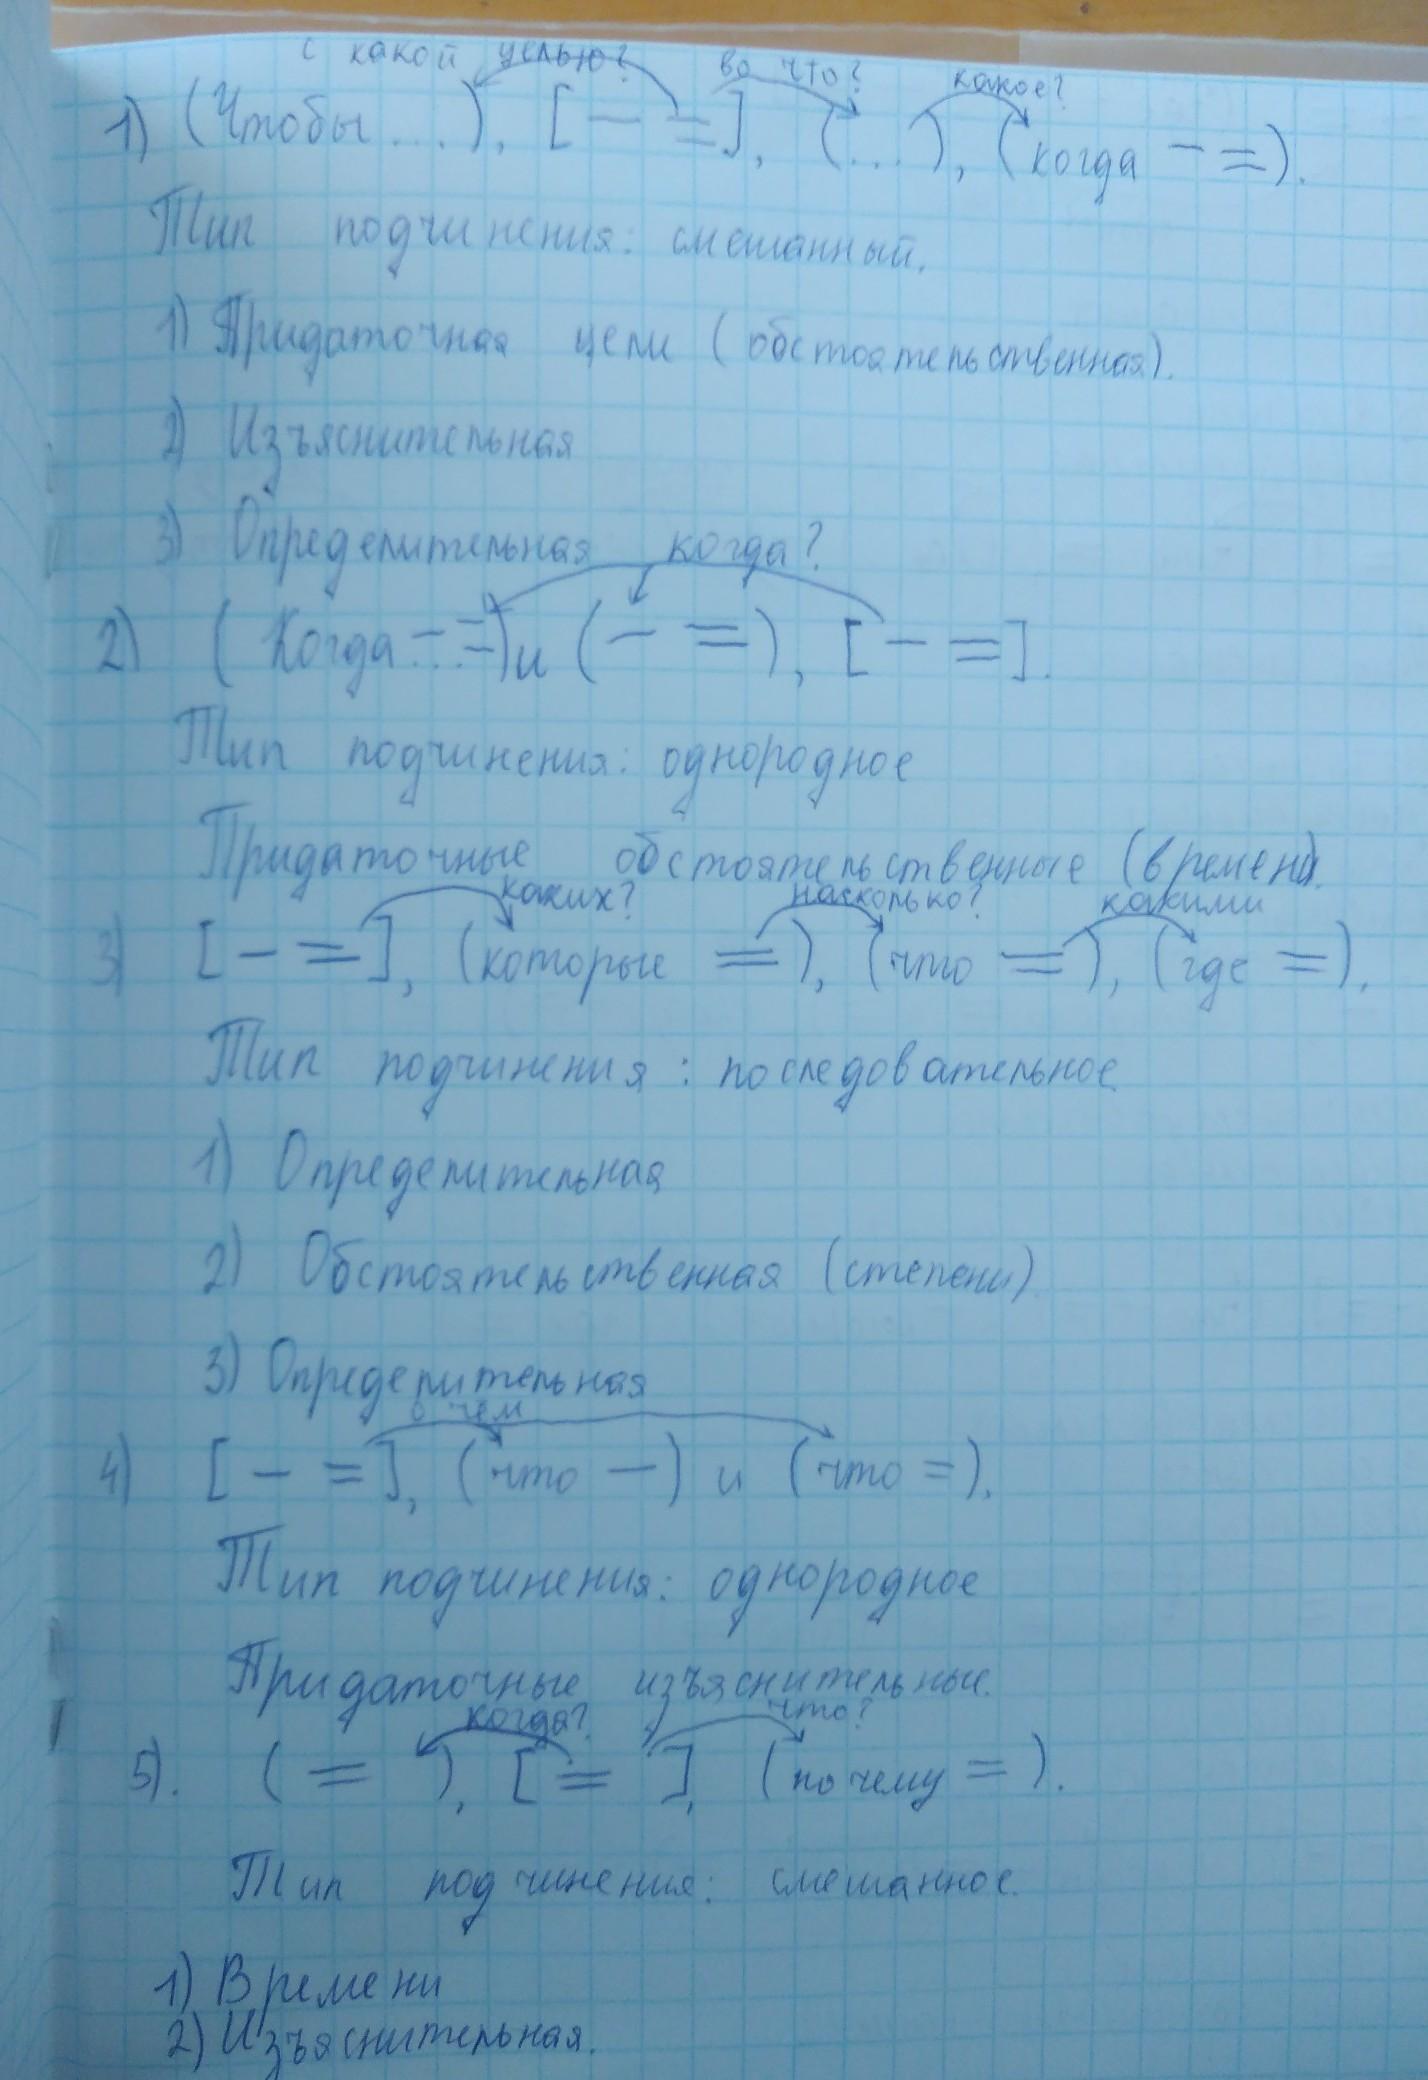 с какой целью? во что? какое?
1) (Чтобы ...), [— =], (...), (когда — =).
Тип подчинения: смешанный.
1) Придаточная цели (обстоятельственная).
2) Изъяснительная
3) Определительная
когда?
2) (Когда — ... =) и (— =), [— =].
Тип подчинения: однородное
Придаточные обстоятельственные (времени).
каких? насколько? какими
3) [— =], (которые =), (что =), (где =).
Тип подчинения: последовательное
1) Определительная
2) Обстоятельственная (степени)
3) Определительная
о чем
4) [— =], (что —) и (что =).
Тип подчинения: однородное
Придаточные изъяснительные.
когда? что?
5). (=), [=], (почему =).
Тип подчинения: смешанное.
1) Времени
2) Изъяснительная.